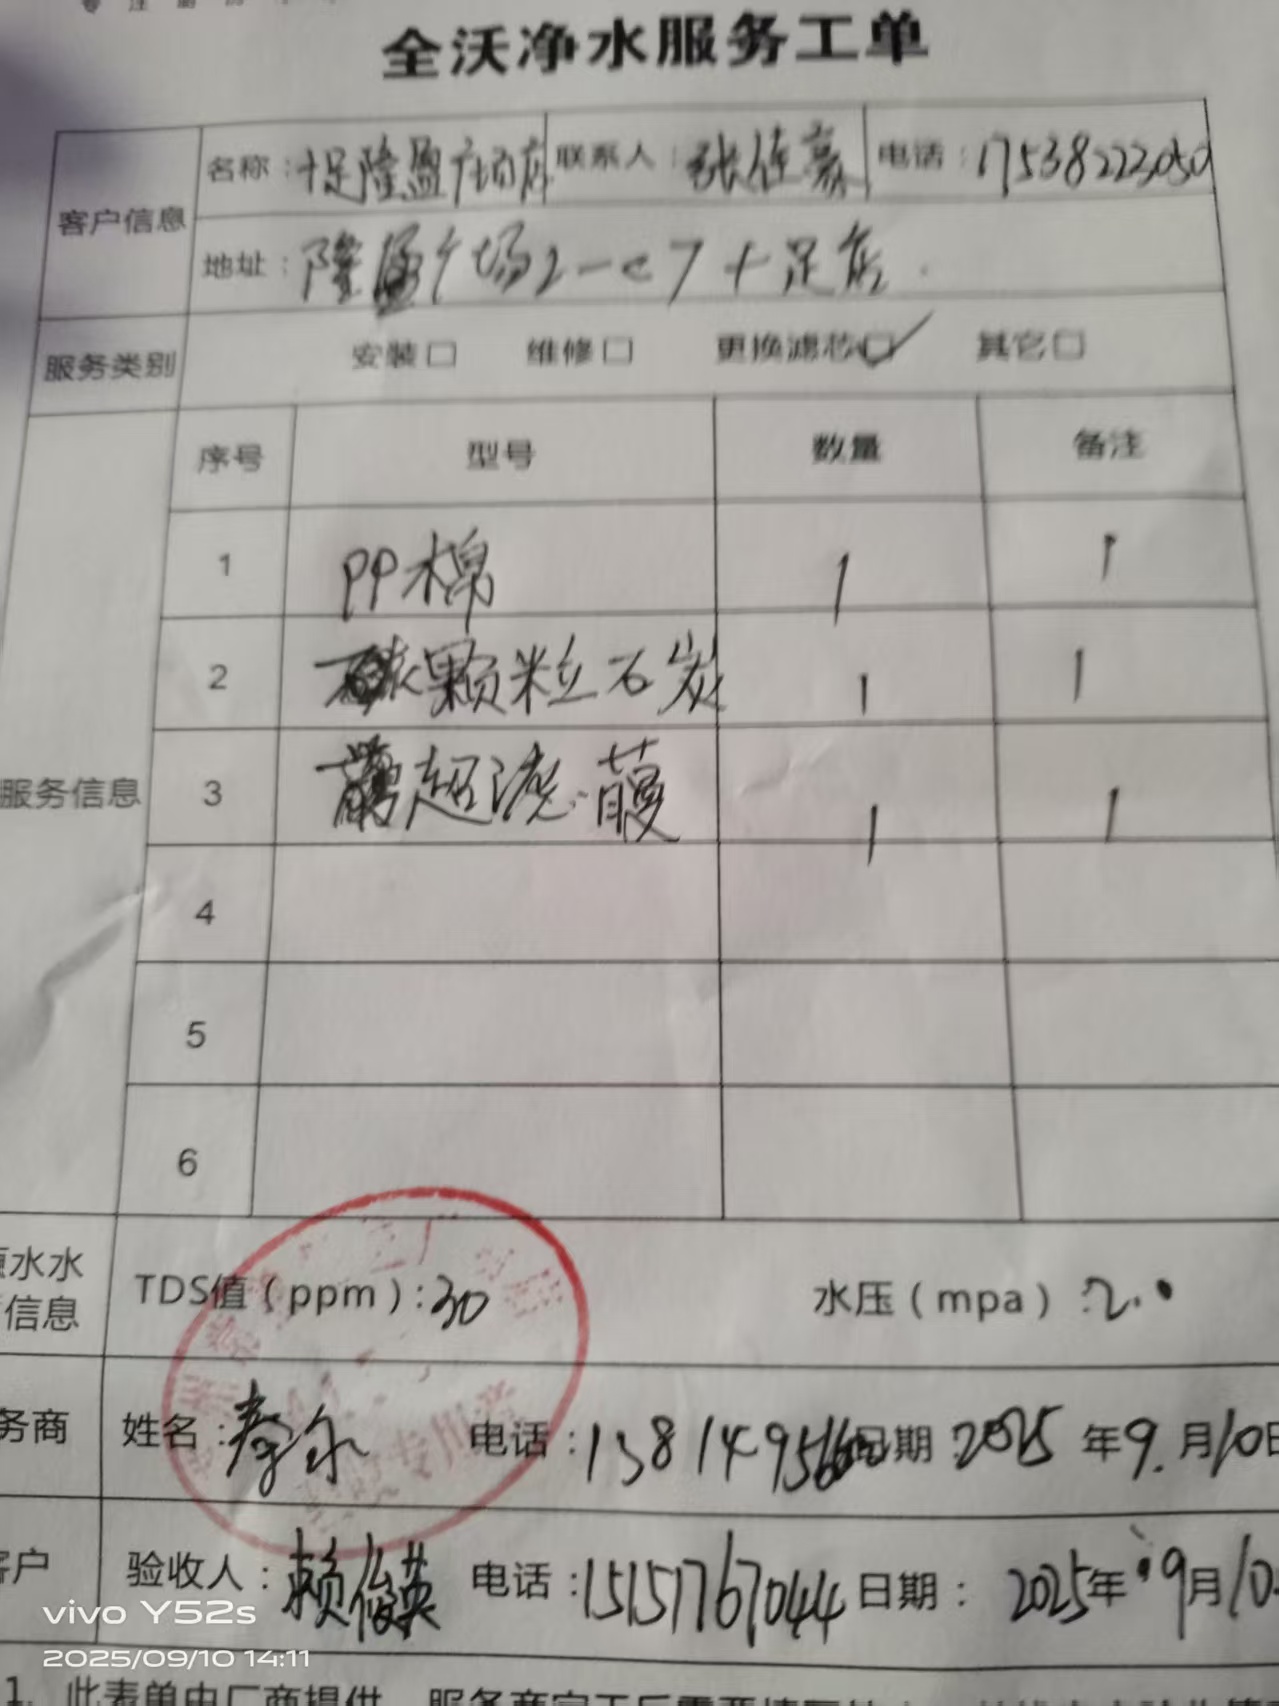 全沃净水服务工单
客户信息
名称：十足隆盈广场店 联系人： 电话：17538222050
地址：隆盈广场2-C7十足店
服务类别 安装□ 维修□ 更换滤芯□✓ 其它□
服务信息
序号 型号 数量 备注
1 PP棉 1 1
2 颗粒石炭 1 1
3 超滤 1 1
4
5
6
水水
信息
TDS值（ppm）:30 水压（mpa）:2.
务商 姓名： 电话：日期 2025年9.月10日
客户 验收人：赖俊英 电话：15157767044 日期： 2025年9月10
vivo Y52s
2025/09/10 14:11
1、此表单由厂商提供